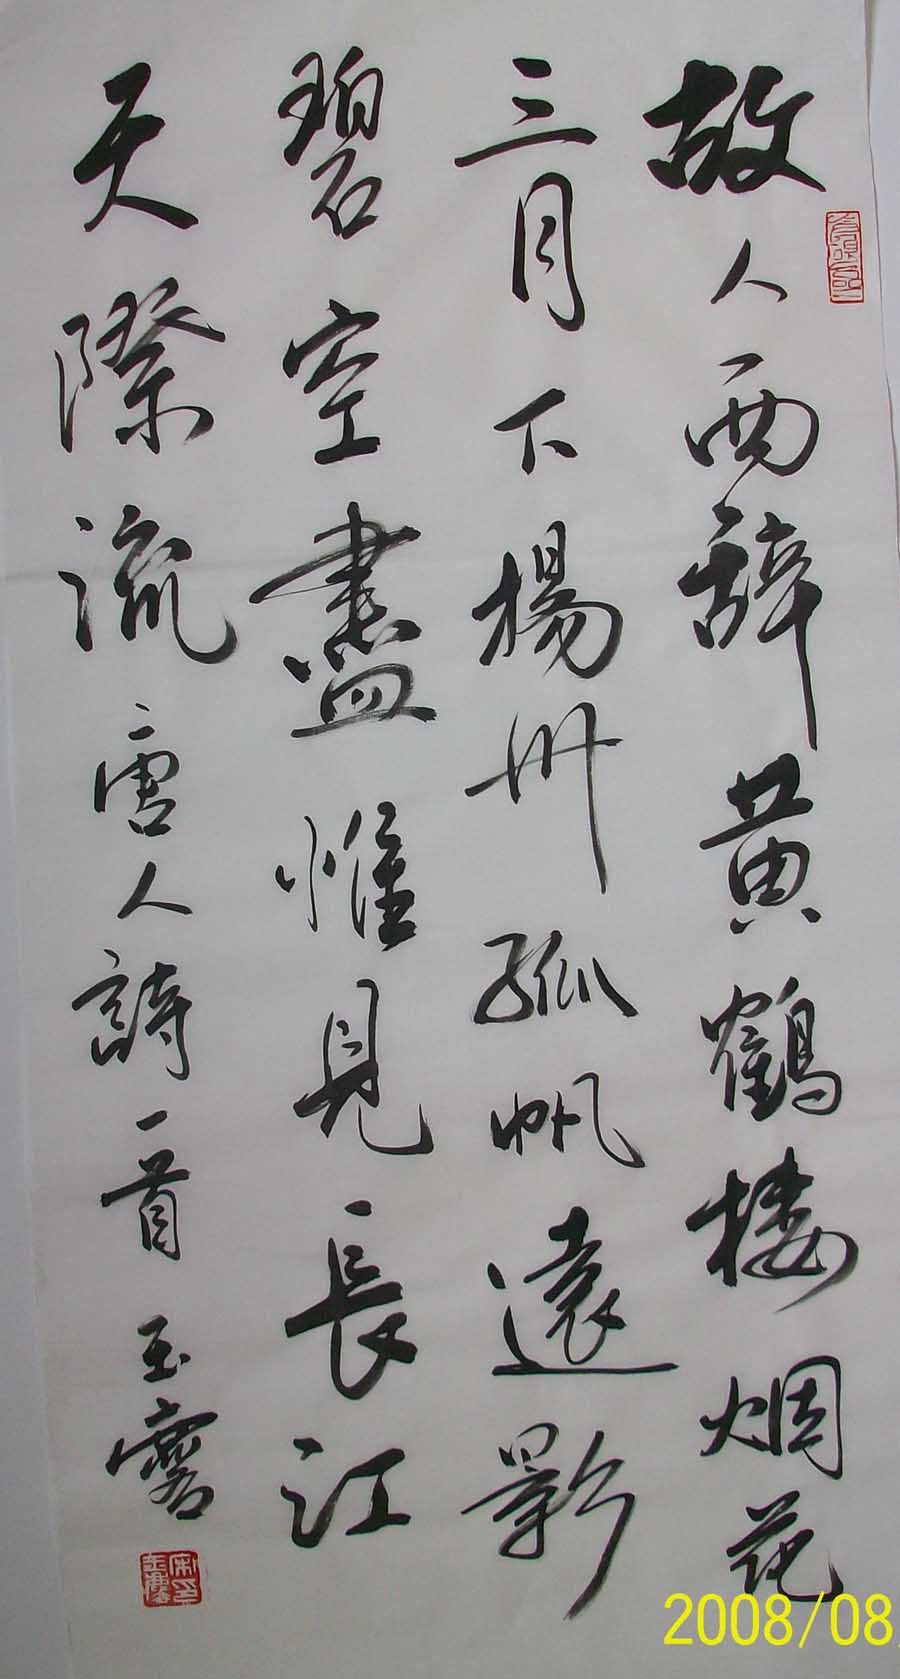 故人西辞黄鶴楼烟花
三月下揚州孤帆遠影
碧空盡惟見長江
天際流唐人詩一首玉
2008/08